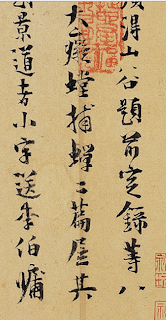 得山谷題前定錄等八
大癡螳捕蟬二篇尾其
景道者小字送李伯牖